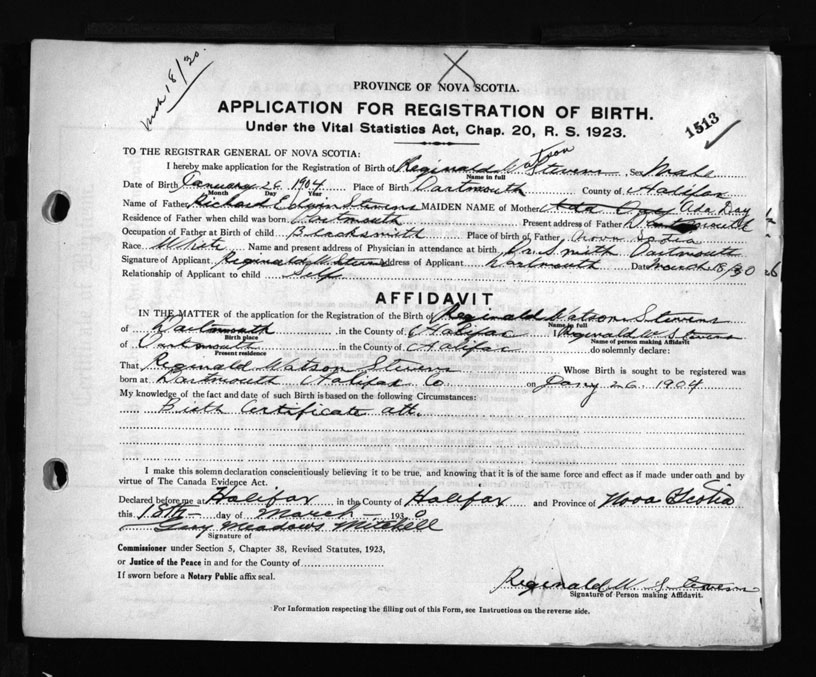 Mch 18/30.
PROVINCE OF NOVA SCOTIA.
APPLICATION FOR REGISTRATION OF BIRTH.
Under the Vital Statistics Act, Chap. 20, R. S. 1923.
1513
TO THE REGISTRAR GENERAL OF NOVA SCOTIA:
I hereby make application for Registration of Birth of Reginald Watson Stevens Sex Male
Name in full
Date of Birth January 26 1904 Place of Birth Dartmouth County of Halifax
Month Day Year
Name of Father Richard Edwyn Stevens MAIDEN NAME of Mother Ada Day Ada Day
Residence of Father when child was born Dartmouth Present address of Father Dartmouth
Occupation of Father at Birth of child Blacksmith Place of birth of Father Nova Scotia
Race White Name and present address of Physician in attendance at birth Dr. Smith Dartmouth
Signature of Applicant Reginald W. Stevens Address of Applicant Dartmouth Date March 18/30
Relationship of Applicant to child Self
AFFIDAVIT
IN THE MATTER of the application for the Registration of the Birth of Reginald Watson Stevens
Name in full
of Dartmouth , in the County of Halifax I Reginald W Stevens
Birth place Name of person making Affidavit
of Dartmouth in the County of Halifax do solemnly declare:
Present residence
That Reginald Watson Stevens Whose Birth is sought to be registered was
born at Dartmouth Halifax Co on Jany 26 1904
My knowledge of the fact and date of such Birth is based on the following Circumstances:
Birth Certificate att.
I make this solemn declaration conscientiously believing it to be true, and knowing that it is of the same force and effect as if made under oath and by
virtue of The Canada Evidence Act.
Declared before me at Halifax in the County of Halifax and Province of Nova Scotia
this 18th day of March 1930
Guy Meadows Mitchell
Signature of
Commissioner under Section 5, Chapter 38, Revised Statutes, 1923,
or Justice of the Peace in and for the County of
If sworn before a Notary Public affix seal.
Reginald W. Stevens
Signature of Person making Affidavit.
For Information respecting the filling out of this Form, see Instructions on the reverse side.